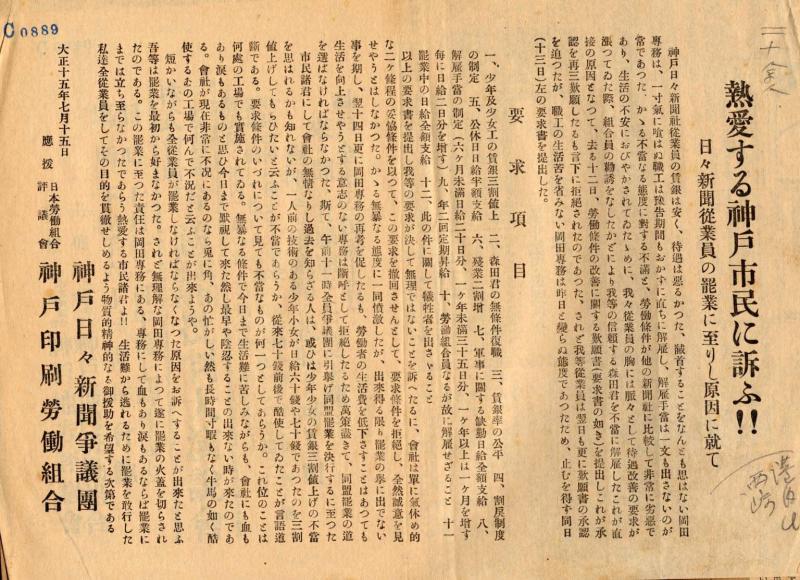 C 0889
熱愛する神戸市民に訴ふ!!
日々新聞従業員の罷業に至りし原因に就て
神戸日々新聞社従業員の賃銀は安く、待遇は悪るかつた、馘首することをなんとも思はない岡田
専務は、一寸氣に喰はぬ職工は豫告期間もおかずに直ちに解雇し、解雇手當は一文も出さないのが
常であつた。かゝる不當なる態度に對する不滿と、勞働條件が他の新聞社に比較して非常に劣惡で
あり、生活の不安におびやかされてゐたゝめに、我々従業員の胸には脈々として待遇改善の要求が
漲つてゐた際、組合員の勧誘をなしたかどにより我等の信頼する森田君を不當に解雇したこれが直
接の原因となつて、去る十二日、勞働條件の改善に關する歎願書(要求書の如き)を提出しこれが承
認を再三歎願したるも言下に拒絶されたのであつた、されど我等従業員は翌日も更に歎願書の承認
を迫つたが、職工の生活苦を省みない岡田専務は昨日と變らぬ態度であつたため、止むを得ず同日
(十三日)左の要求書を提出した。
要求項目
一、少年及少女工の賃銀三割値上 二、森田君の無條件復職 三、賃銀率の公平 四、割戻制度
の制定 五、公休日日給半額支給 六、殘業二割増 七、軍事に關する缺勤日給全額支給 八、
解雇手當の制定(六ケ月未滿日給二十日分、一ケ年未滿三十五日分、一ケ年以上は一ケ月を増す
毎に日給二日分を増す)九、年二回定期昇給 十、勞働組合員なるが故に解雇せざること 十一
罷業中の日給全額支給 十二、此の件に關して犠牲者を出さゞること
以上の要求書を提出し我等の要求が決して無理ではないことを訴へたるに、會社は單に氣休め的
な二ケ條程の妥協條件を以つて、この要求を撤回させんとして、要求條件を拒絶し、全然誠意を見
せやうとはしなかつた。かゝる無暴なる態度に一同憤激したが、出來得る限り罷業の擧に出でない
事を期し、翌十四日更に岡田専務の再考を促したるも、勞働者の生活費を低下さすことはあつても
生活を向上させやうとする意志のない専務は斷呼として拒絶したるため萬策盡きて、同盟罷業の道
を選ばなければならなかつた。斯て、午前十一時全員争議團に引擧げ同盟罷業を決行するに至つた
市民諸君にして會社の無情なりし過去を知らざる人は、或ひは少年少女の賃銀三割値上げの不當
を思はれるかも知れないが、一人前の技術のある少年小女が日給六十錢や七十錢であつたのを三割
値上げしてもらひたいと云ふことが不當であらうか、從來七十錢前後で酷使してゐたことが言語道
斷である。要求條件のいづれについて見ても不當なものが何一つとしてあらうか。これ位のことは
何處の工場でも實施されてゐる。無暴なる條件で今日まで生活難に苦しみながらも、會社にも血も
あり涙もあるものと思ひ今日まで默視して來た然し最早や隠忍することの出來ない時が來たのであ
る。會社が現在非常に不況にあるのなら兎に角、あの忙がしい然も長時間寸暇もなく牛馬の如く酷
使するあの工場で何んで不況だと云ふことが出來ようや。
短かいながらも全従業員が罷業しなければならなくなつた原因をお訴へすることが出來たと思ふ
吾等は罷業を最初から好まなかつた。されど無理解なる岡田専務によつて遂に罷業の火蓋を切らされ
たのである。この罷業に至つた責任は岡田専務にある、専務にして血もあり涙もあるならば罷業に
までは立ち至らなかつたであらう熱愛する市民諸君よ!! 生活難から逃れるために罷業を敢行した
私達全従業員をしてその目的を貫徹せしめるやう物質的精神的なる御援助を希望する次第である
大正十五年七月十五日
神戸日々新聞争議團
應援 日本勞働組合評議會 神戸印刷勞働組合